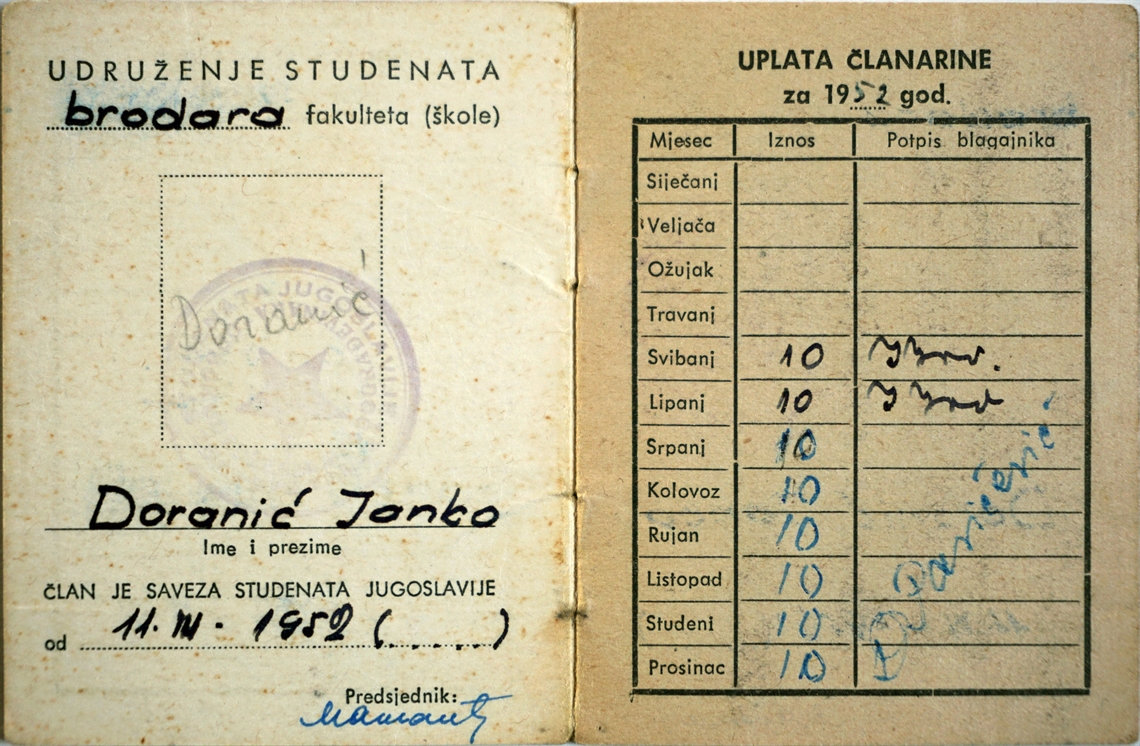 UDRUŽENJE STUDENATA
brodara fakulteta (škole)
Doranić
Doranić Janko
Ime i prezime
ČLAN JE SAVEZA STUDENATA JUGOSLAVIJE
od 11. III - 1952 (......)
Predsjednik:
UPLATA ČLANARINE
za 1952 god.
Mjesec Iznos Potpis blagajnika
Siječanj
Veljača
Ožujak
Travanj
Svibanj 10
Lipanj 10
Srpanj 10
Kolovoz 10
Rujan 10
Listopad 10
Studeni 10
Prosinac 10